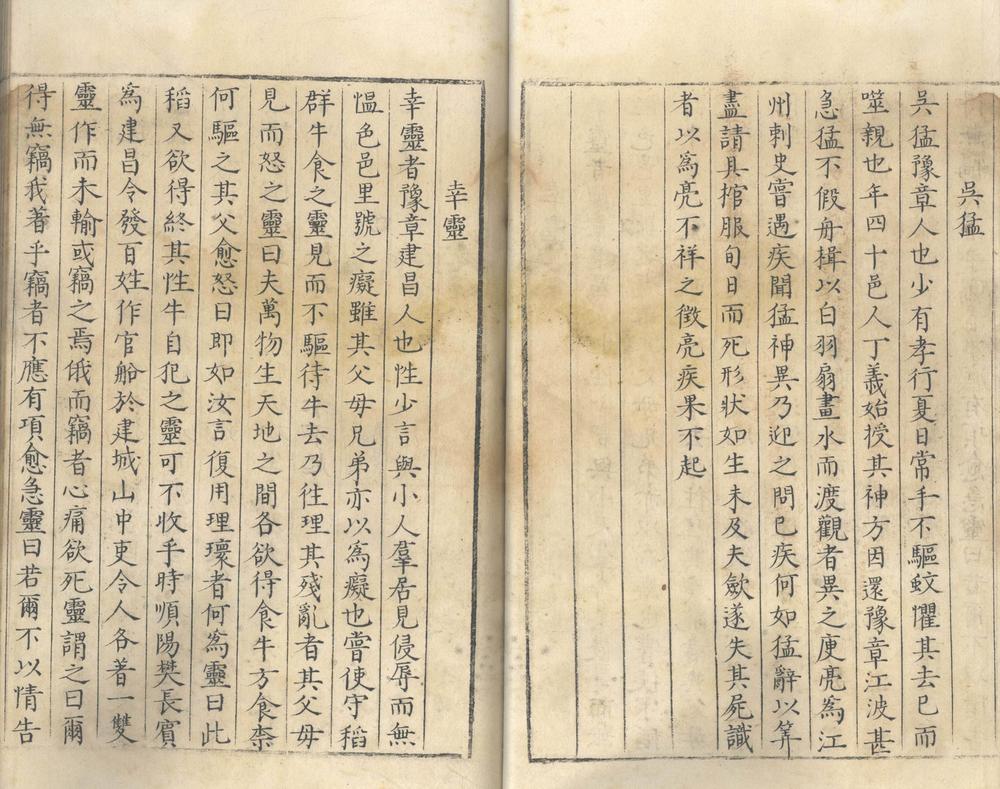 吳猛
吳猛豫章人也少有孝行夏日常手不驅蚊懼其去已而
噬親也年四十邑人丁義始授其神方因還豫章江波甚
急猛不假舟楫以白羽扇畫水而渡觀者異之庾亮為江
州刺史嘗遇疾聞猛神異乃迎之問已疾何如猛辭以筭
盡請具棺服旬日而死形狀如生未及大歛遂失其屍識
者以為亮不祥之徵亮疾果不起
幸靈
幸靈者豫章建昌人也性少言與小人羣居見侵辱而無
愠色邑里號之癡雖其父母兄弟亦以為癡也嘗使守稻
群牛食之靈見而不驅待牛去乃往理其殘亂者其父母
見而怒之靈曰夫萬物生天地之間各欲得食牛方食柰
何驅之其父愈怒曰即如汝言復用理壞者何為靈曰此
稻又欲得終其性牛自犯之靈可不收乎時順陽樊長賓
為建昌令發百姓作官船於建城山中吏令人各著一雙
靈作而未輸或竊之焉俄而竊者心痛欲死靈謂之曰爾
得無竊我著乎竊者不應有項愈急靈曰若爾不以情告